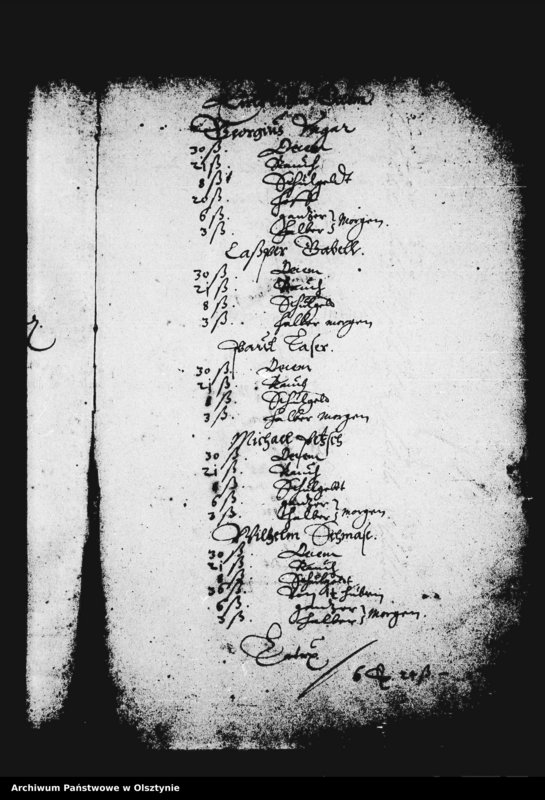 Georgius Ungar
30 ß. Decem
21 ß. Rauch
8 ß. Schulgeldt
20 ß. Hoff
6 ß. gantzer } Morgen.
3 ß. halber }
Caßper Babell.
30 ß. Decem
21 ß. Rauch
8 ß. Schulgeld
3 ß. halber morgen
Paul Laser.
30 ß. Decem
21 ß. Rauch
8 ß. Schulgeld
3 ß. halber morgen
Michael
30 ß. Decem
21 ß. Rauch
8 ß. Schulgeldt
6 ß. gantzer } morgen
3 ß. halber }
Wilhelm
30 ß. Decem
21 ß. Rauch
8 ß. Schulgeldt
36 ß. von huben
6 ß. gantzer } Morgen.
3 ß. halber }
6 ß
Archiwum Państwowe w Olsztynie